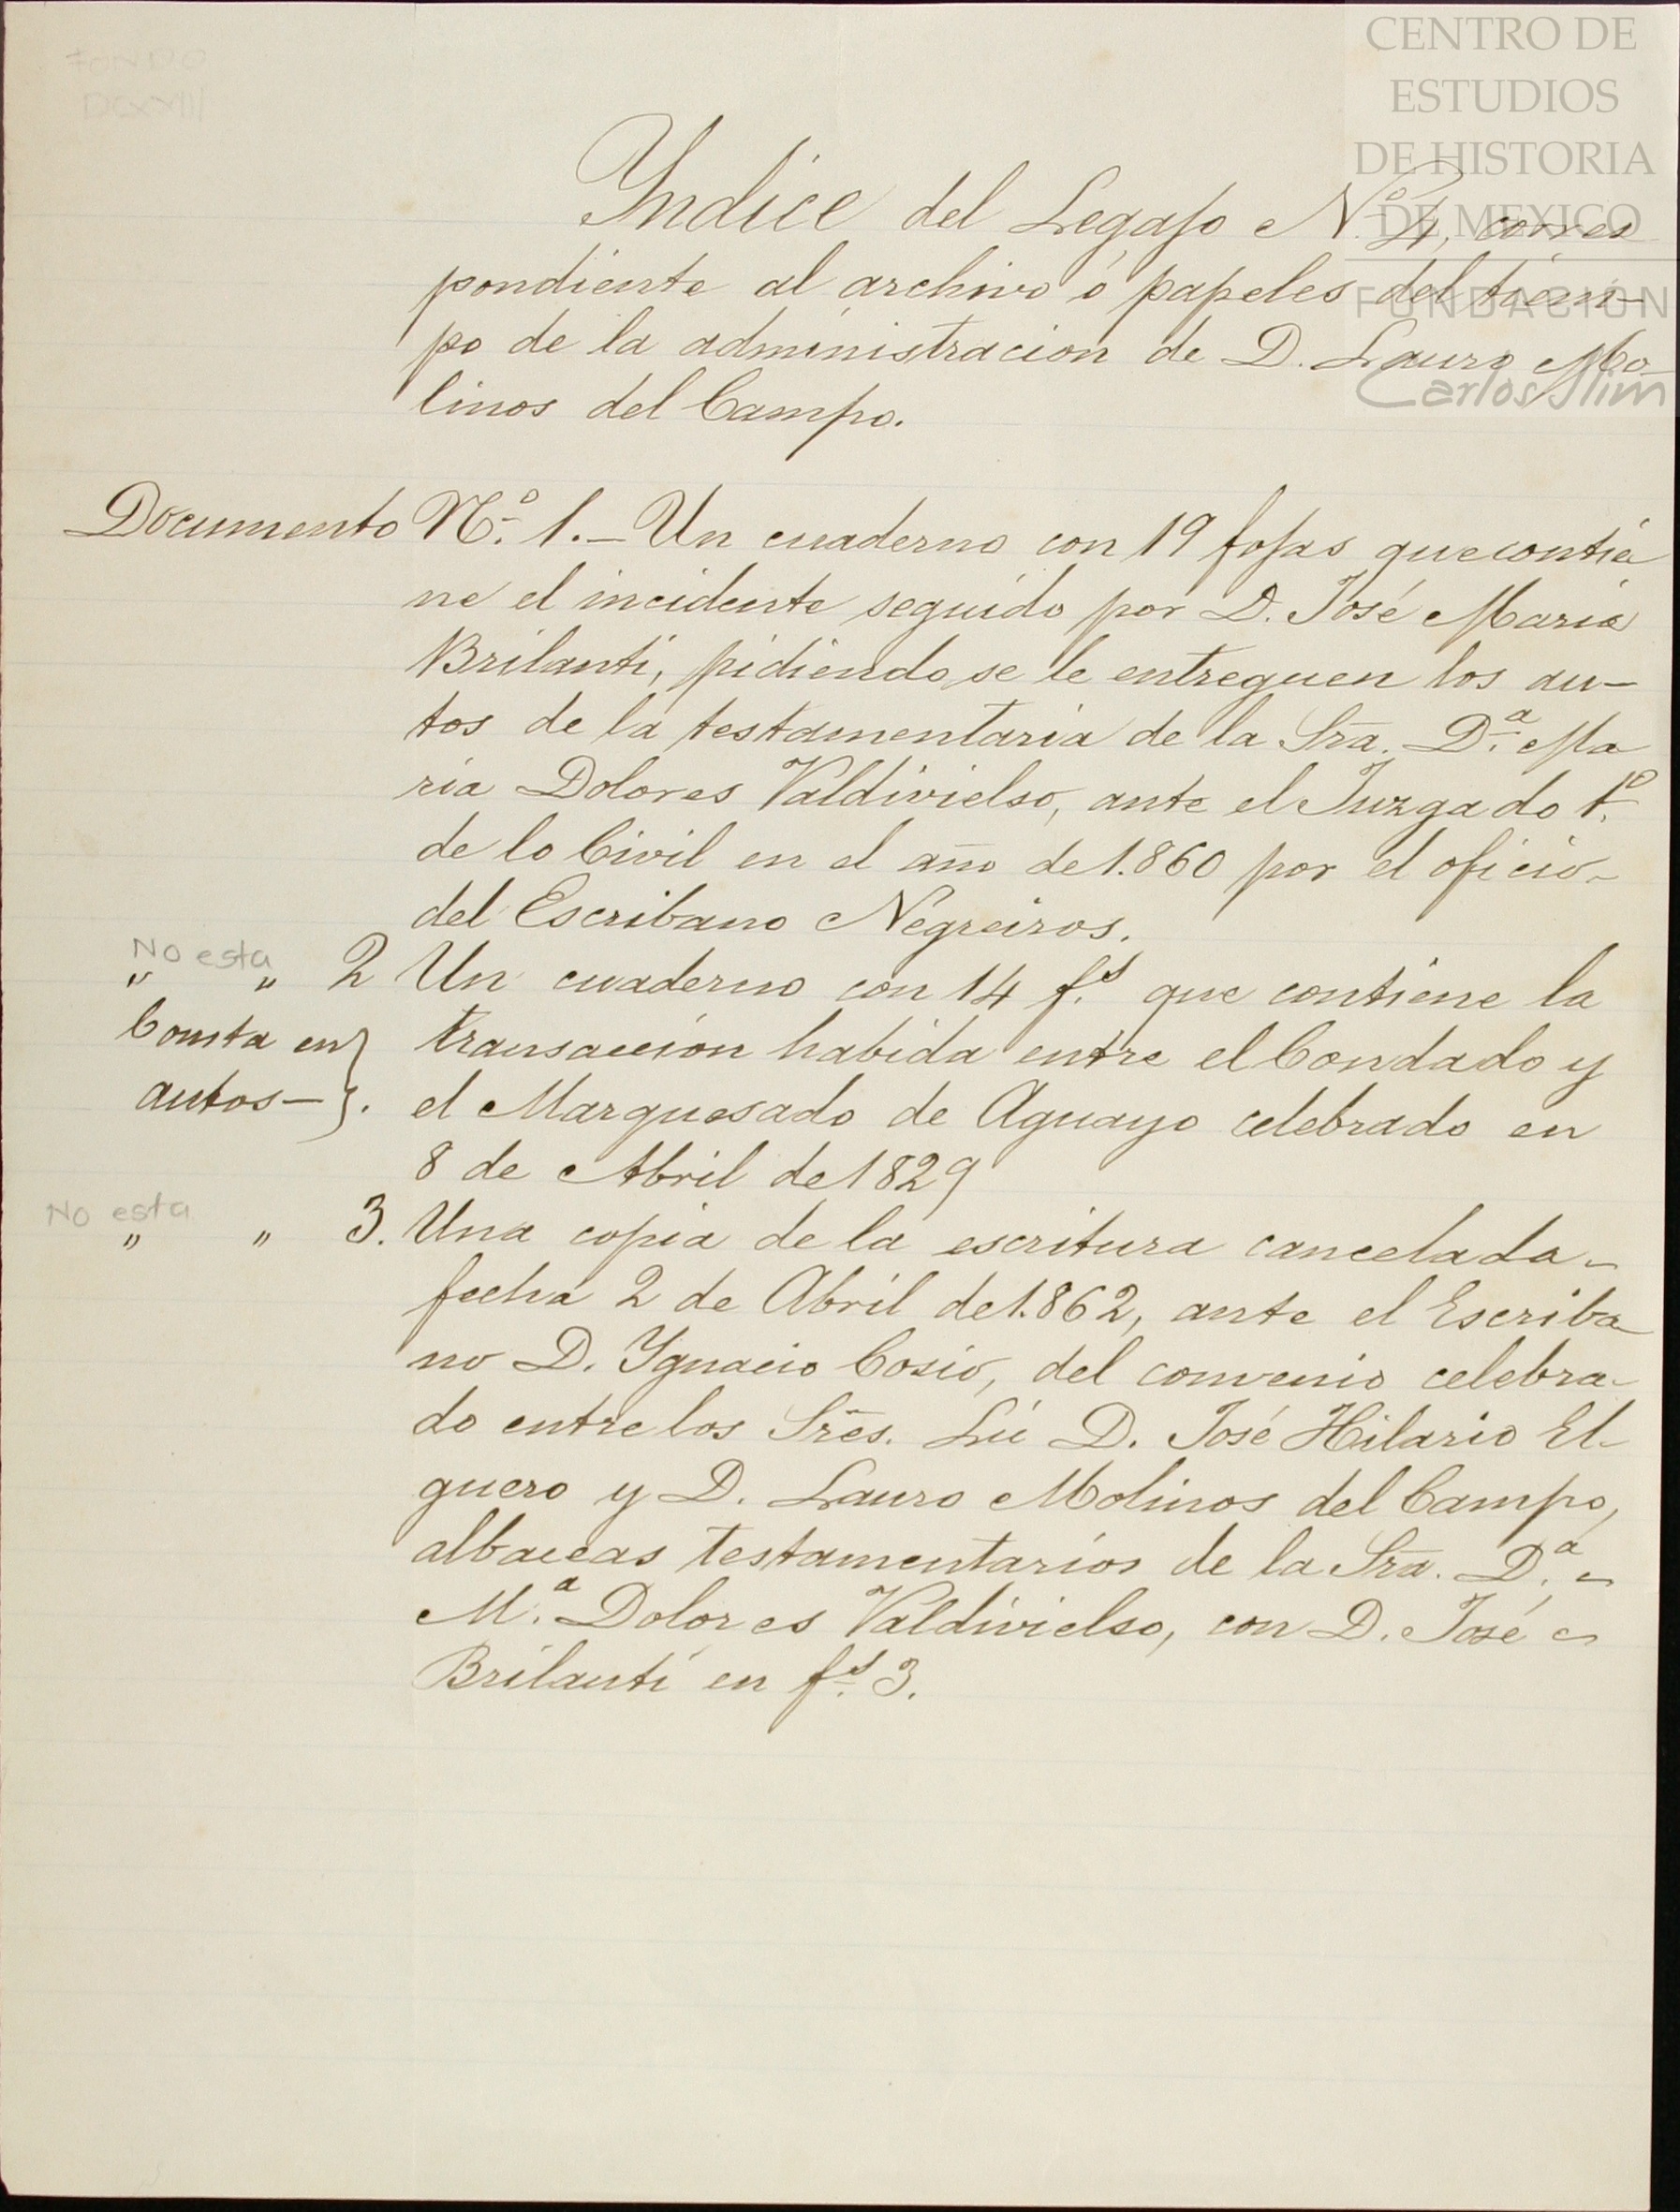 FONDO
DCXVIII
CENTRO DE
ESTUDIOS
DE HISTORIA
DE MEXICO
FUNDACIÓN
Carlos Slim
Yndice del Legajo Nº 4, corres
pondiente al archivo ó papeles del tiem-
po de la administracion de D. Lauro Mo-
linos del Campo.
Documento Nº. 1.- Un cuaderno con 19 fojas que contie
ne el incidente seguido por D. José Maria
Brilanti, pidiendo se le entreguen los au-
tos de la testamentaria de la Sra. D.ª Ma
ria Dolores Valdivielso, ante el Juzgado 1º.
de lo Civil en el año de 1.860 por el oficio-
del Escribano Negreiros.
No esta
" " 2 Un cuaderno con 14 f.s que contiene la
Consta en } transaccion habida entre el Condado y
autos- }. el Marquesado de Aguayo celebrado en
8 de Abril de 1829
No esta
" " 3. Una copia de la escritura cancelada-
fecha 2 de Abril de 1.862, ante el Escriba-
no D. Ygnacio Cosio, del convenio celebra-
do entre los Sres. Lic D. José Hilario El-
guero y D. Lauro Molinos del Campo,
albaceas testamentarios de la Sra. D.ª
M.ª Dolores Valdivielso, con D. José
Brilanti en f.s 3.